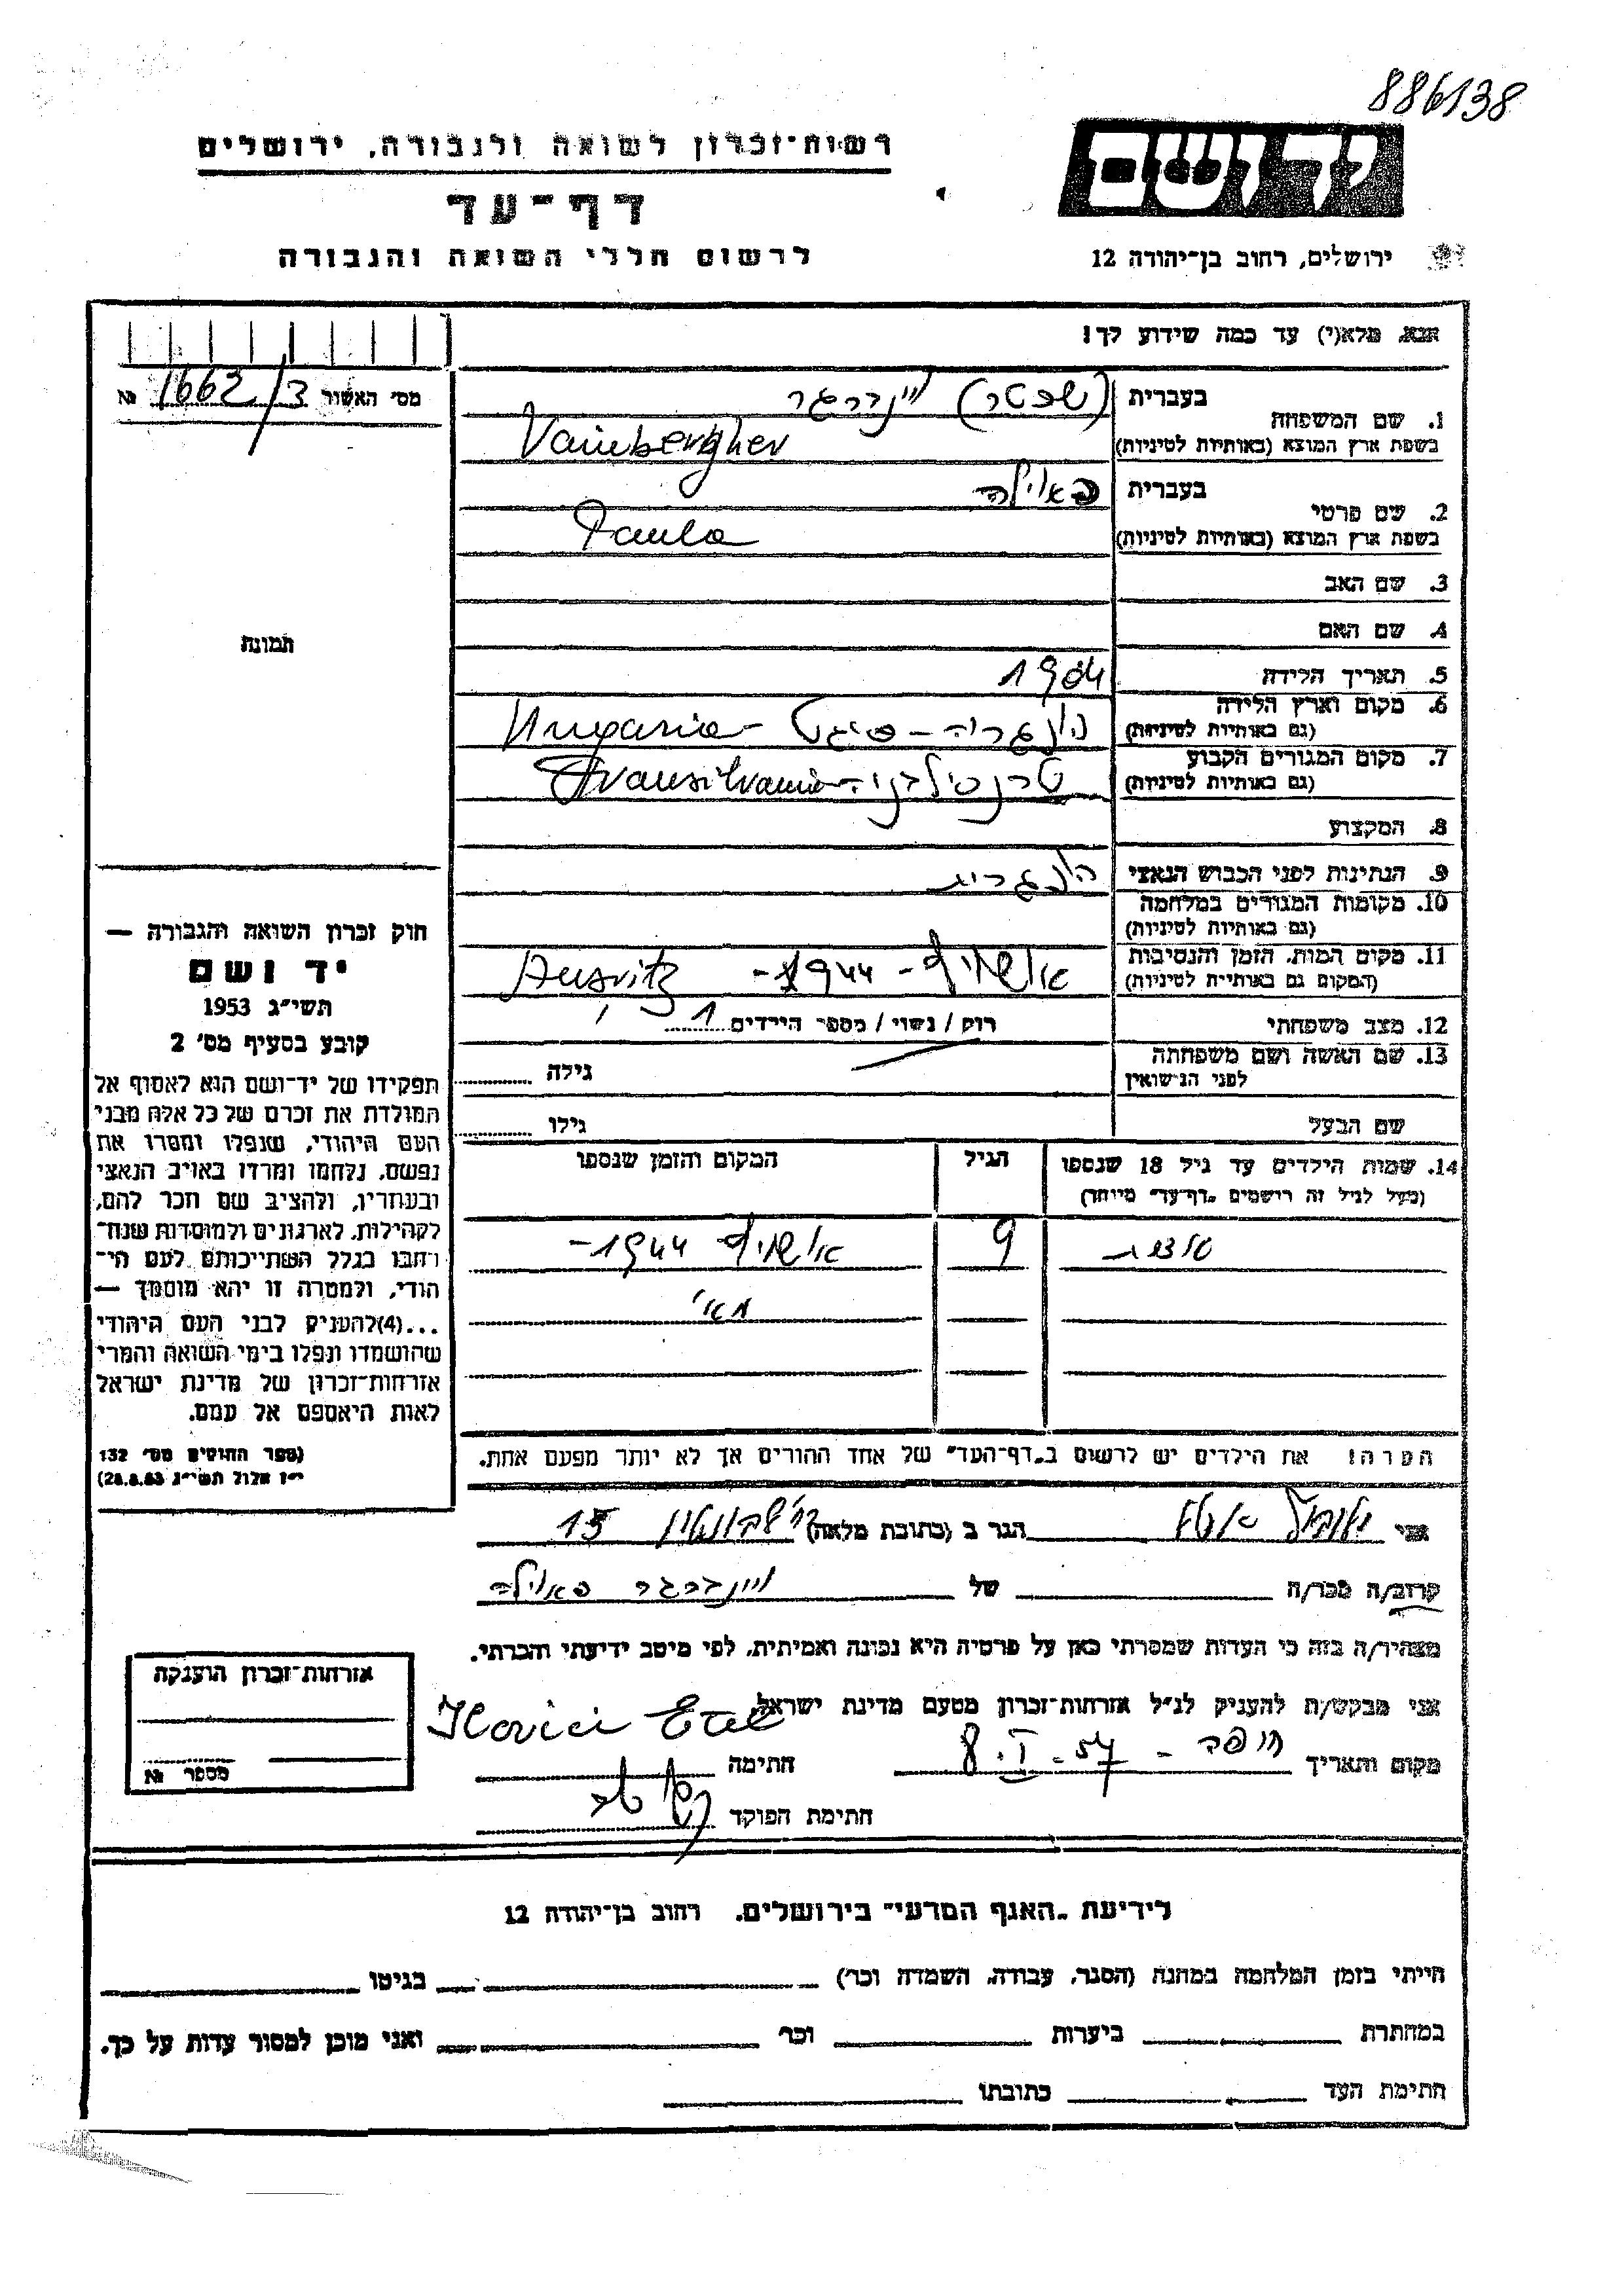 886138
רשות-זכרון לשואה ולגבורה, ירושלים
יד ושם
דף-עד
לרשום חללי השואה והגבורה
ירושלים, רחוב בן-יהודה 12
אנא, מלא(י) עד כמה שידוע לך!
מס' האשור 1662/3 №
בעברית (שכטר) ויינברגר
1. שם המשפחה
בשפת ארץ המוצא (באותיות לטיניות) Vainbergher
בעברית פאולה
2. שם פרטי
בשפת ארץ המוצא (באותיות לטיניות) Paula
3. שם האב
4. שם האם
תמונה
5. תאריך הלידה 1904
6. מקום וארץ הלידה הונגריה - סיגט - Hungaria
(גם באותיות לטיניות)
7. מקום המגורים הקבוע טרנסילבניה - Transilvania
(גם באותיות לטיניות)
8. המקצוע
9. הנתינות לפני הכבוש הנאצי הונגרית
10. מקומות המגורים במלחמה
(גם באותיות לטיניות)
11. מקום המות, הזמן והנסיבות אושויץ - 1944 - Ausvitz
(המקום גם באותיות לטיניות)
12. מצב משפחתי רווק / נשוי / מספר הילדים 1
13. שם האשה ושם משפחתה
לפני הנישואין גילה
שם הבעל גילו
14. שמות הילדים עד גיל 18 שנספו הגיל המקום והזמן שנספו
(מעל לגיל זה רישמים "דף-עד" מיוחד)
9 אושויץ 1944-
מאי
הערה! את הילדים יש לרשום ב"דף-העד" של אחד ההורים אך לא יותר מפעם אחת.
חוק זכרון השואה והגבורה —
יד ושם
תשי"ג 1953
קובע בסעיף מס' 2
תפקידו של יד-ושם הוא לאסוף אל
המולדת את זכרם של כל אלה מבני
העם היהודי, שנפלו ומסרו את
נפשם, נלחמו ומרדו באויב הנאצי
ובעוזריו, ולהציב שם וזכר להם,
לקהילות, לארגונים ולמוסדות שנח־
רחבו בגלל השתייכותם לעם הי־
הודי, ולמטרה זו יהא מוסמך —
...(4)להעניק לבני העם היהודי
שהושמדו ונפלו בימי השואה והמרי
אזרחות-זכרון של מדינת ישראל
לאות היאספם אל עמם.
(ספר החוקים מס' 132
י"ז אלול תשי"ג 28.8.53)
אני הגר ב (כתובת מלאה) 15
קרוב/ה מכר/ה של ויינברגר פאולה
מצהיר/ה בזה כי העדות שמסרתי כאן על פרטיה היא נכונה ואמיתית, לפי מיטב ידיעתי והכרתי.
אני מבקש/ת להעניק לנ"ל אזרחות-זכרון מטעם מדינת ישראל
Ilovici Etel
מקום ותאריך חיפה - 8.I.57 חתימה
חתימת הפוקד
אזרחות-זכרון הוענקה
מספר №
לידיעת "האגף המדעי" בירושלים. רחוב בן-יהודה 12
הייתי בזמן המלחמה במחנה (הסגר, עבודה, השמדה וכו') בגיטו
במחתרת ביערות וכו' ואני מוכן למסור עדות על כך.
חתימת העד כתובתו